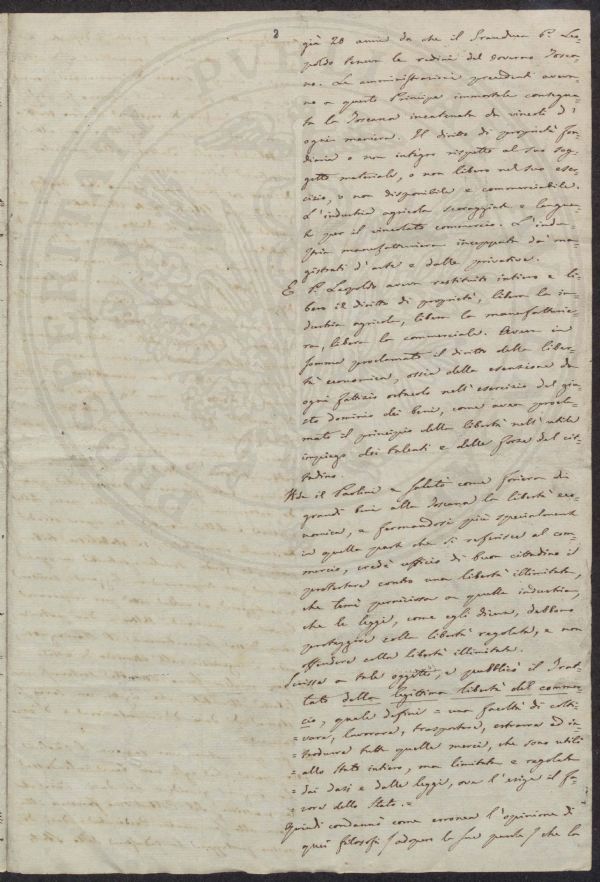 8
già 20 anni da che il Granduca P. Leo-
poldo teneva le redini del Governo Tosca-
no. Le amministrazioni precedenti aveva-
no a questo Principe immortale consegna-
ta la Toscana incatenata da vincoli d'
ogni maniera. Il diritto di proprietà fon-
diaria o non integro rispetto al suo sog-
getto materiale, o non libero nel suo eser-
cizio, o non disponibile e commerciabile.
L'industria agricola scoraggiata e languen-
te per il vincolato commercio. L'indu-
stria manifatturiera inceppata dai ma-
gistrati d'arte e dalle privative.
E P. Leopoldo aveva restituito intiero e li-
bero il diritto di proprietà, libera la in-
dustria agricola, libera la manifatturie-
ra, libera la commerciale. Aveva in
somma proclamato il diritto della liber-
tà economica, ossia della esenzione da
ogni fattizio ostacolo nell'esercizio del giu-
sto dominio dei beni, come aveva procla-
mato il principio della libertà nell'utile
impiego dei talenti e delle forze del cit-
tadino.
Ma il Paolini a salutò come foriera di
grandi beni alla Toscana la libertà eco-
nomica, e fermandosi più specialmente
in quella parte che si referisce al com-
mercio, credè ufficio di buon cittadino il
protestare contro una libertà illimitata,
che temè perniciosa a quelle industrie,
che le leggi, come egli diceva, debbono
proteggere colla libertà regolata, e non
offendere colla libertà illimitata.
Scrisse a tale oggetto, e pubblicò il Trat-
tato della legittima libertà del commer-
cio, quale definì = una facoltà di colti-
= vare, lavorare, trasportare, estrarre ed in-
= trodurre tutte quelle merci, che sono utili
= allo Stato intiero, ma limitata e regolata
= dai dazi e dalle leggi, ove l'esige il fa-
= vore dello Stato. =
Quindi condannò come erronea l'opinione di
quei filosofi / adopro le sue parole / che la
PRO
PVB